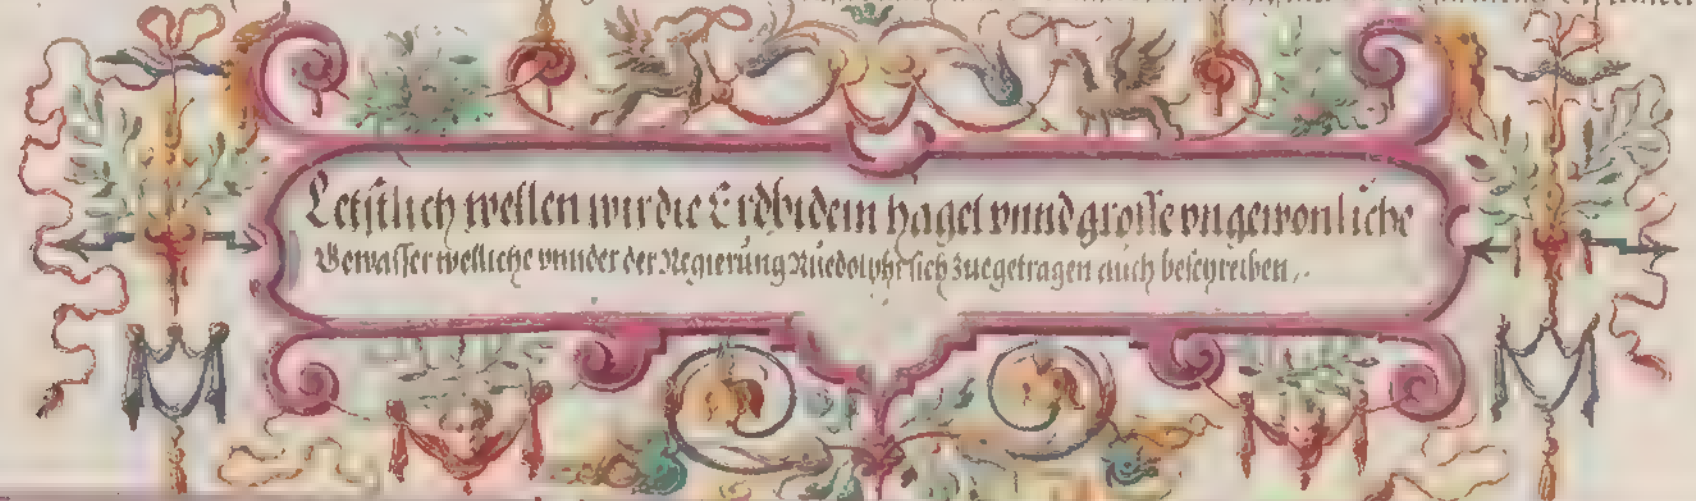 Letstlich wellen wir die Erdbidem hagel vnnd grosse vngewonliche
Gewasser welliche vnnder der Regierung Rüedolphi sich zuegetragen auch beschreiben.